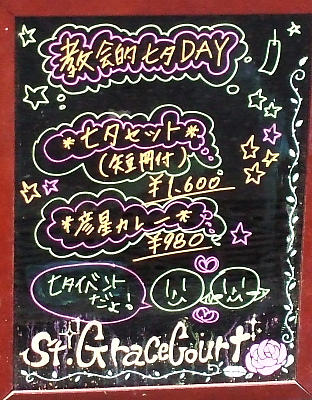 教会的七夕DAY
*七夕セット*
(短冊付)
¥1,600
*彦星カレー*
¥980
七夕イベント
だよ!
St.GraceCourt